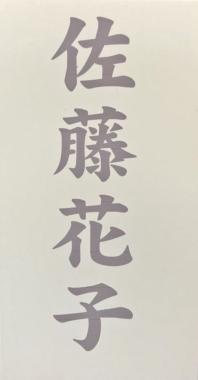 佐藤花子